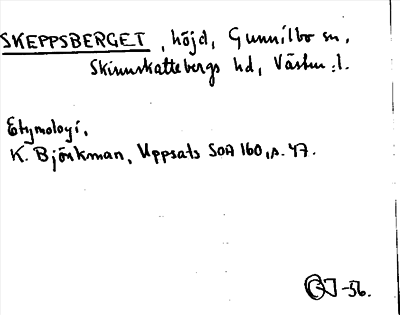 SKEPPSBERGET, höjd, Gunnilbo sn,
Skinnskattebergs hd, Västm.l.
Etymologi,
K. Björkman, Uppsats SOA 160, s. 47.
-56.